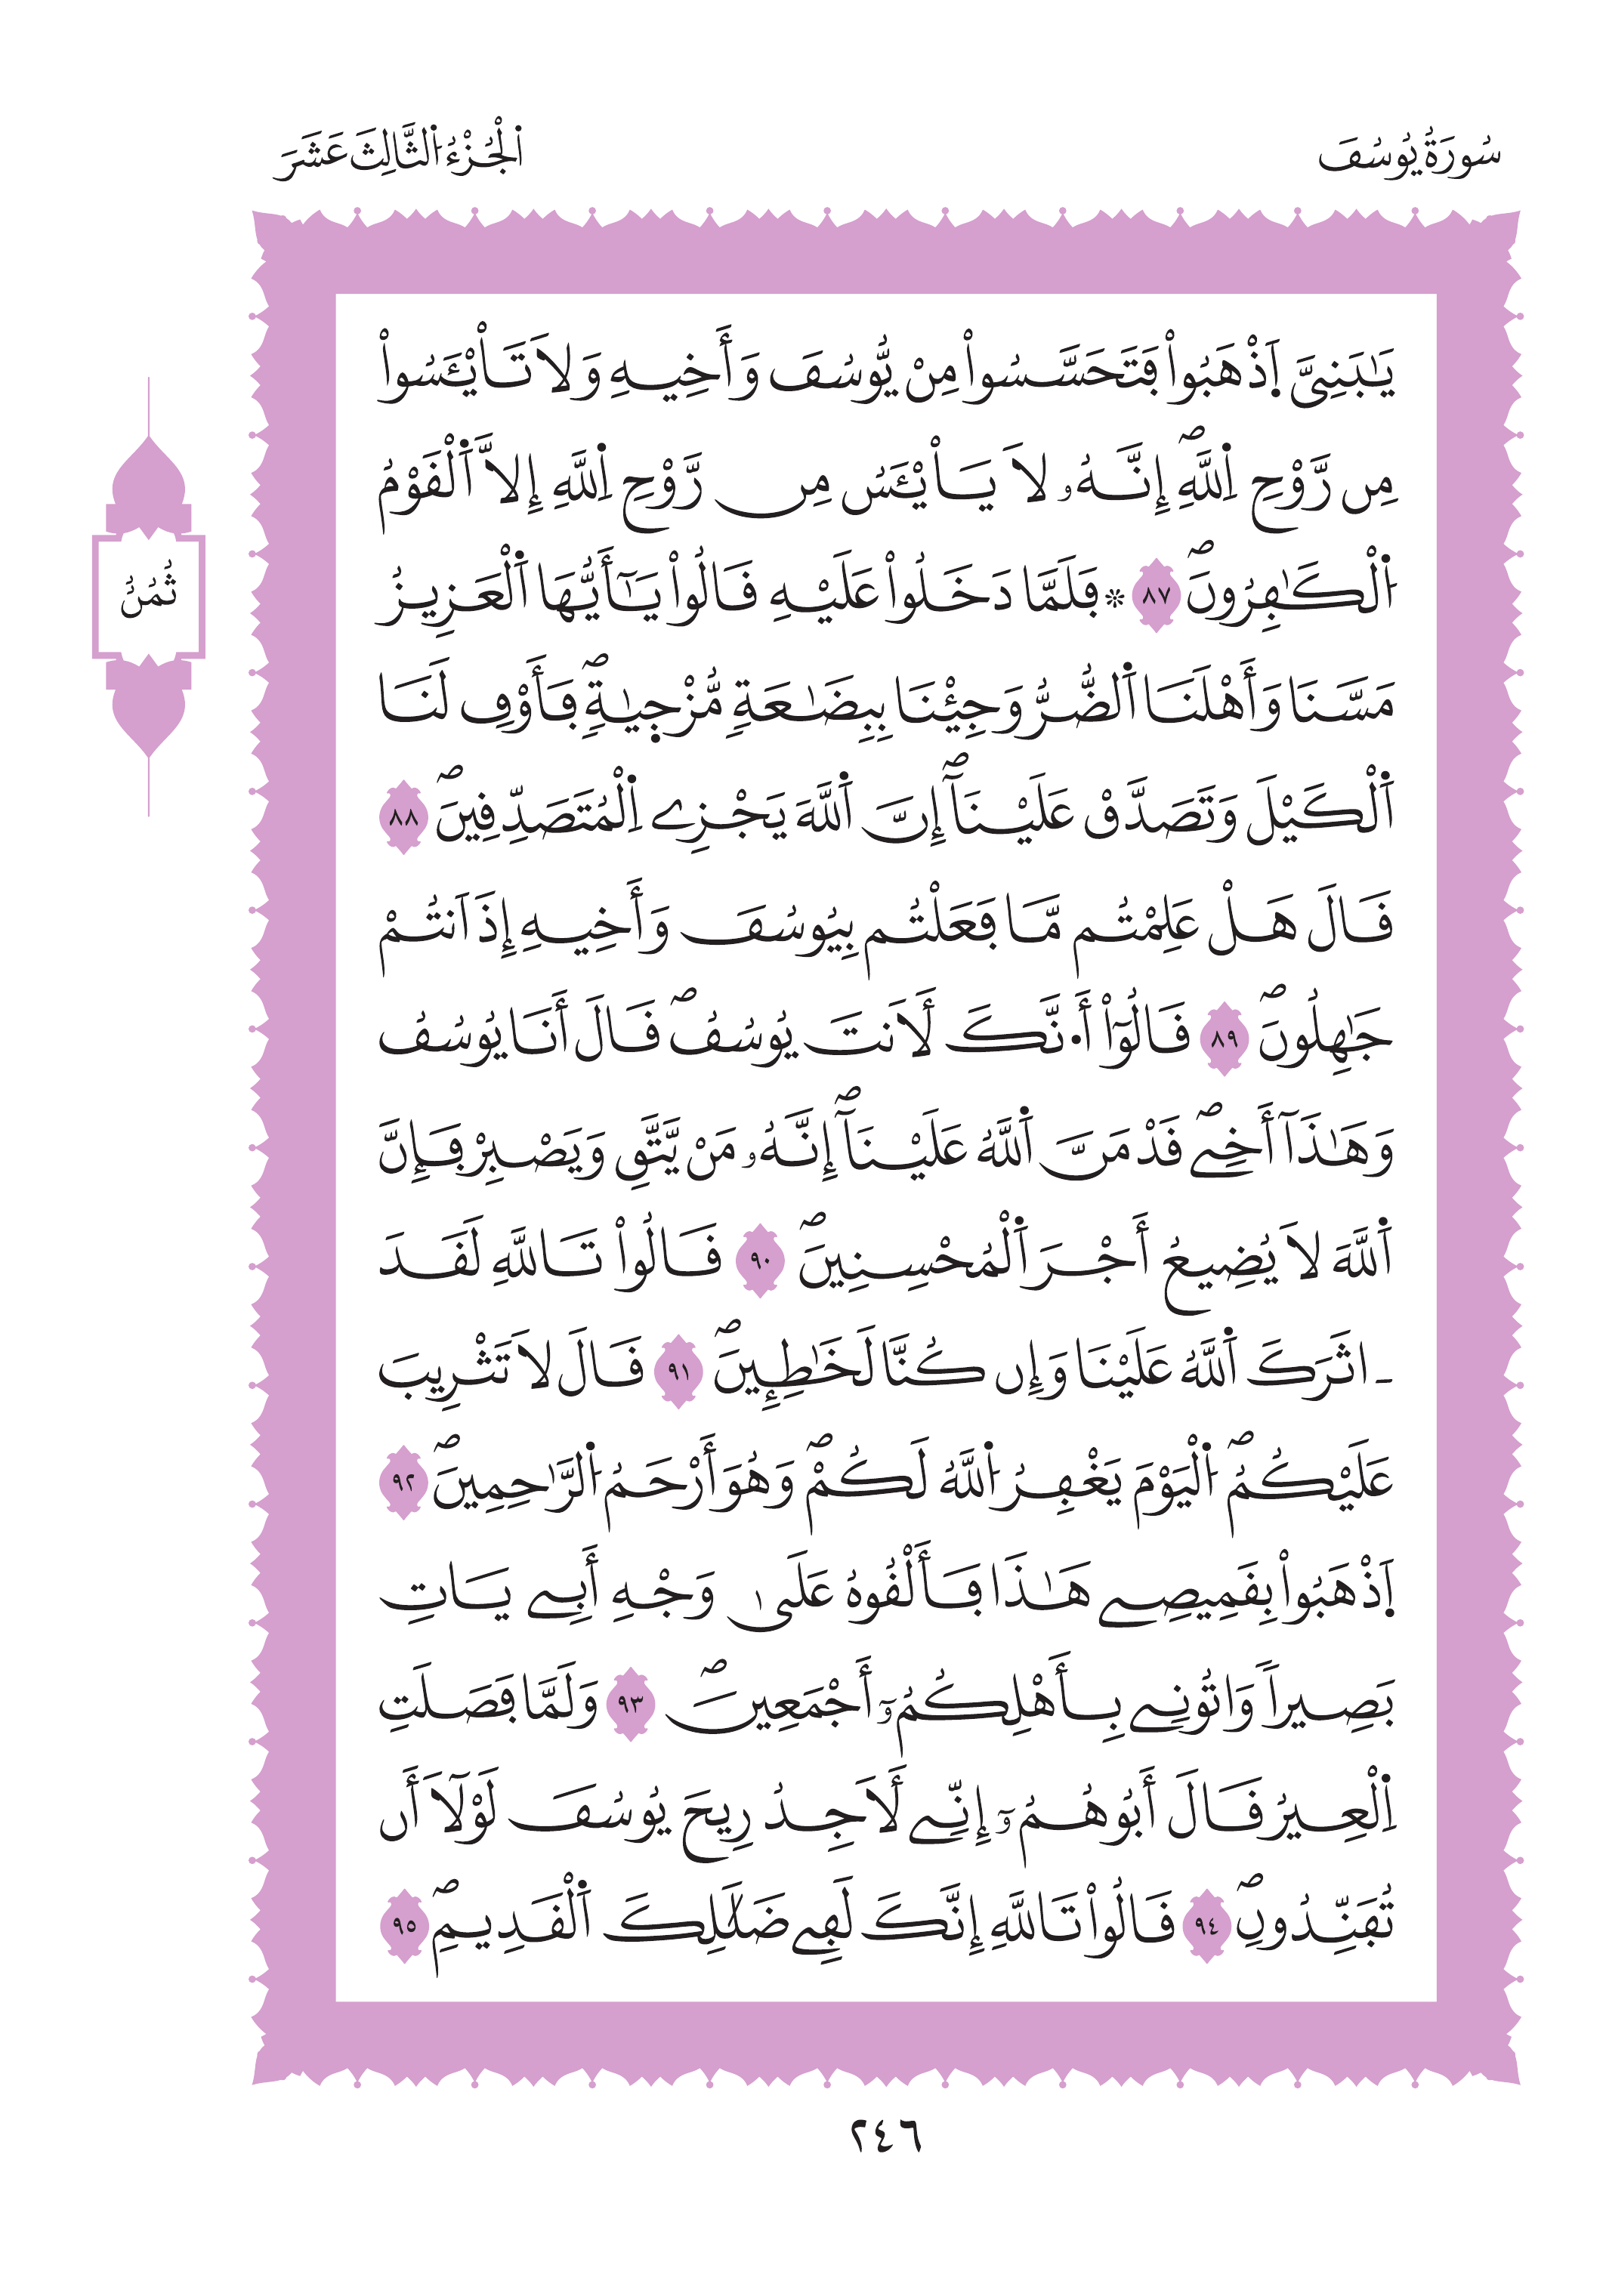 سُورَةُ يُوسُفَ
اَ۬لْجُزْءُ اُ۬لثَّالِثَ عَشَرَ
يَٰبَنِيَّ اَ۪ذْهَبُواْ فَتَحَسَّسُواْ مِنْ يُّوسُفَ وَأَخِيهِ وَلَا تَاْيْـَٔسُواْ
مِن رَّوْحِ اِ۬للَّهِۖ إِنَّهُۥ لَا يَاْيْـَٔسُ مِن رَّوْحِ اِ۬للَّهِ إِلَّا اَ۬لْقَوْمُ
اُ۬لْكَٰفِرُونَۖ ٨٧ ۞ فَلَمَّا دَخَلُواْ عَلَيْهِ قَالُواْ يَٰٓأَيُّهَا اَ۬لْعَزِيزُ
مَسَّنَا وَأَهْلَنَا اَ۬لضُّرُّ وَجِئْنَا بِبِضَٰعَةٖ مُّزْج۪يٰةٖۖ فَأَوْفِ لَنَا
اَ۬لْكَيْلَ وَتَصَدَّقْ عَلَيْنَآۖ إِنَّ اَ۬للَّهَ يَجْزِے اِ۬لْمُتَصَدِّقِينَۖ ٨٨
قَالَ هَلْ عَلِمْتُم مَّا فَعَلْتُم بِيُوسُفَ وَأَخِيهِ إِذَ اَنتُمْ
جَٰهِلُونَۖ ٨٩ قَالُوٓاْ أَ۟نَّكَ لَأَنتَ يُوسُفُۖ قَالَ أَنَا يُوسُفُ
وَهَٰذَآ أَخِےۖ قَدْ مَنَّ اَ۬للَّهُ عَلَيْنَآۖ إِنَّهُۥ مَنْ يَّتَّقِ وَيَصْبِرْ فَإِنَّ
اَ۬للَّهَ لَا يُضِيعُ أَجْرَ اَ۬لْمُحْسِنِينَۖ ٩٠ قَالُواْ تَاللَّهِ لَقَدَ
ـ اثَرَكَ اَ۬للَّهُ عَلَيْنَا وَإِن كُنَّا لَخَٰطِـِٕينَۖ ٩١ قَالَ لَا تَثْرِيبَ
عَلَيْكُمُۖ اُ۬لْيَوْمَ يَغْفِرُ اُ۬للَّهُ لَكُمْۖ وَهُوَ أَرْحَمُ اُ۬لرَّٰحِمِينَۖ ٩٢
اَ۪ذْهَبُواْ بِقَمِيصِے هَٰذَا فَأَلْقُوهُ عَلَىٰ وَجْهِ أَبِے يَاتِ
بَصِيراٗ وَاتُونِے بِأَهْلِكُمُۥٓ أَجْمَعِينَۖ ٩٣ وَلَمَّا فَصَلَتِ
اِ۬لْعِيرُ قَالَ أَبُوهُمُۥٓ إِنِّے لَأَجِدُ رِيحَ يُوسُفَ لَوْلَآ أَن
تُفَنِّدُونِۖ ٩٤ قَالُواْ تَاللَّهِ إِنَّكَ لَفِے ضَلَٰلِكَ اَ۬لْقَدِيمِۖ ٩٥
ثُمُنُ
٢٤٦